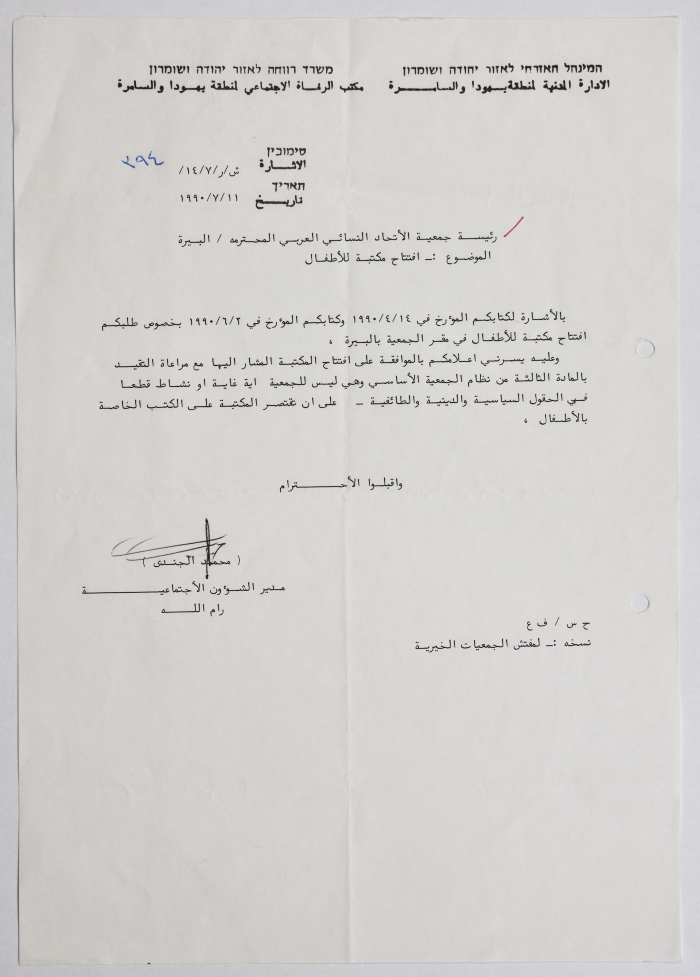 המינהל האזרחי לאזור יהודה ושומרון
الادارة المدنية لمنطقة يهودا والسامرة
משרד רווחה לאזור יהודה ושומרון
مكتب الرفاة الاجتماعي لمنطقة يهودا والسامرة
סימוכין
الاشارة ش/ر/١٤/٧/ ٣٩٤
תאריך
تاريخ ١٩٩٠/٧/١١
رئيسة جمعية الأتحاد النسائي العربي المحترمه / البيرة
الموضوع :ـ افتتاح مكتبة للأطفال
بالأشارة لكتابكم المؤرخ في ١٩٩٠/٤/١٤ وكتابكم المؤرخ في ١٩٩٠/٦/٢ بخصوص طلبكم
افتتاح مكتبة للأطفال في مقر الجمعية بالبيرة ،
وعليه يسرني اعلامكم بالموافقة على افتتاح المكتبة المشار اليها مع مراعاة التقيد
بالمادة الثالثة من نظام الجمعية الأساسي وهي ليس للجمعية اية غاية او نشاط قطعا
في الحقول السياسية والدينية والطائفية ـ على ان تقتصر المكتبة على الكتب الخاصة
بالأطفال ،
واقبلوا الأحترام
( محمد الجندي )
مدير الشؤون الأجتماعية
رام الله
ح س / ف ع
نسخه :ـ لمفتش الجمعيات الخيرية